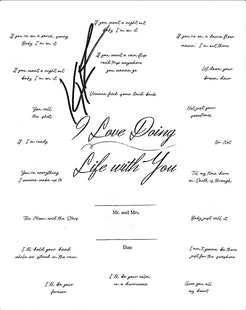 If you want a night out
Baby I'm on it
If you're on a porch, young
Baby I'm on it
If you're on a dance floor
movin' I'm out there
If you want a night out
Baby I'm on it
If you want a
you wanna go
Let down your
hair
Wanna find you laid back
You call
the shots
Not just your
I Love Doing
Life with You
If I'm ready
Or Not
You're everything
I wanna wake up to
Til my time here
on Earth is through
Mr. and Mrs.
The Moon and the Stars
Baby just call it
Date
I'll hold your hand
while we stand in the rain
I ain't gonna be there
just for the sunshine
I'll be your
forever
I'll be your calm
in a hurricane
Give you all
my heart